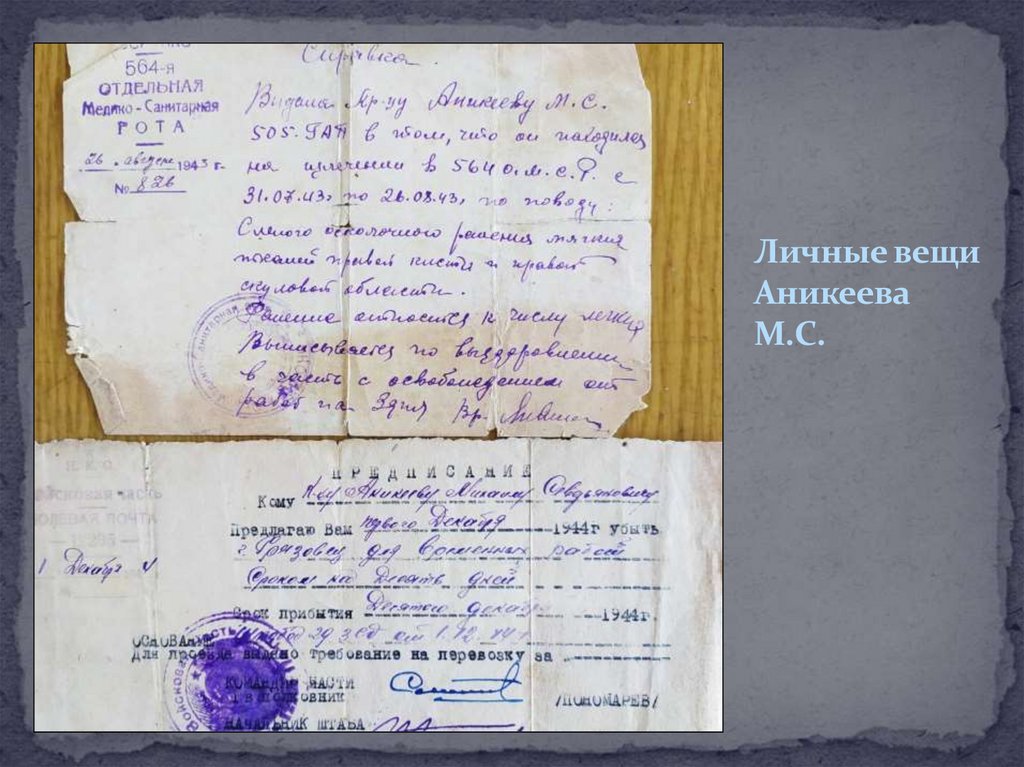 564-я
ОТДЕЛЬНАЯ
Медико-Санитарная
РОТА
26. августа 1943 г.
№ 826
Справка.
Видана Кр-цу Аникееву М.С.
505-ГАП в том, что он находился
на излечении в 564 о.м.с.р. с
31.07.43г по 26.08.43г по поводу:
Слепого осколочного ранения мягких
тканей правой кисти и правой
скуловой области.
Ранение относится к числу легких
Выписывается по выздоровлении
в часть с освобождением от
работ на 3 дня Вр.
ПРЕДПИСАНИЕ
Кому Аникееву Михаилу
Предлагаю Вам первого Декабря 1944г убыть
г. Грязовец для временных работ
Сроком на Десять дней
Срок прибытия Десятого декабря 1944г.
1 Декабря 4
ОСНОВАНИЕ от 1.12.44г
для проезда выдано требование на перевозку за
КОМАНДИР ЧАСТИ
/ПОНОМАРЕВ/
НАЧАЛЬНИК ШТАБА
Личные вещи
Аникеева
М.С.